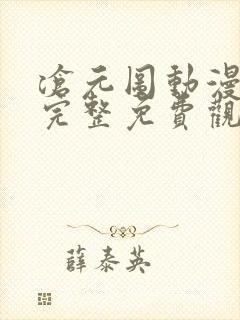 滄元圖動漫
完整免費觀
薛泰英